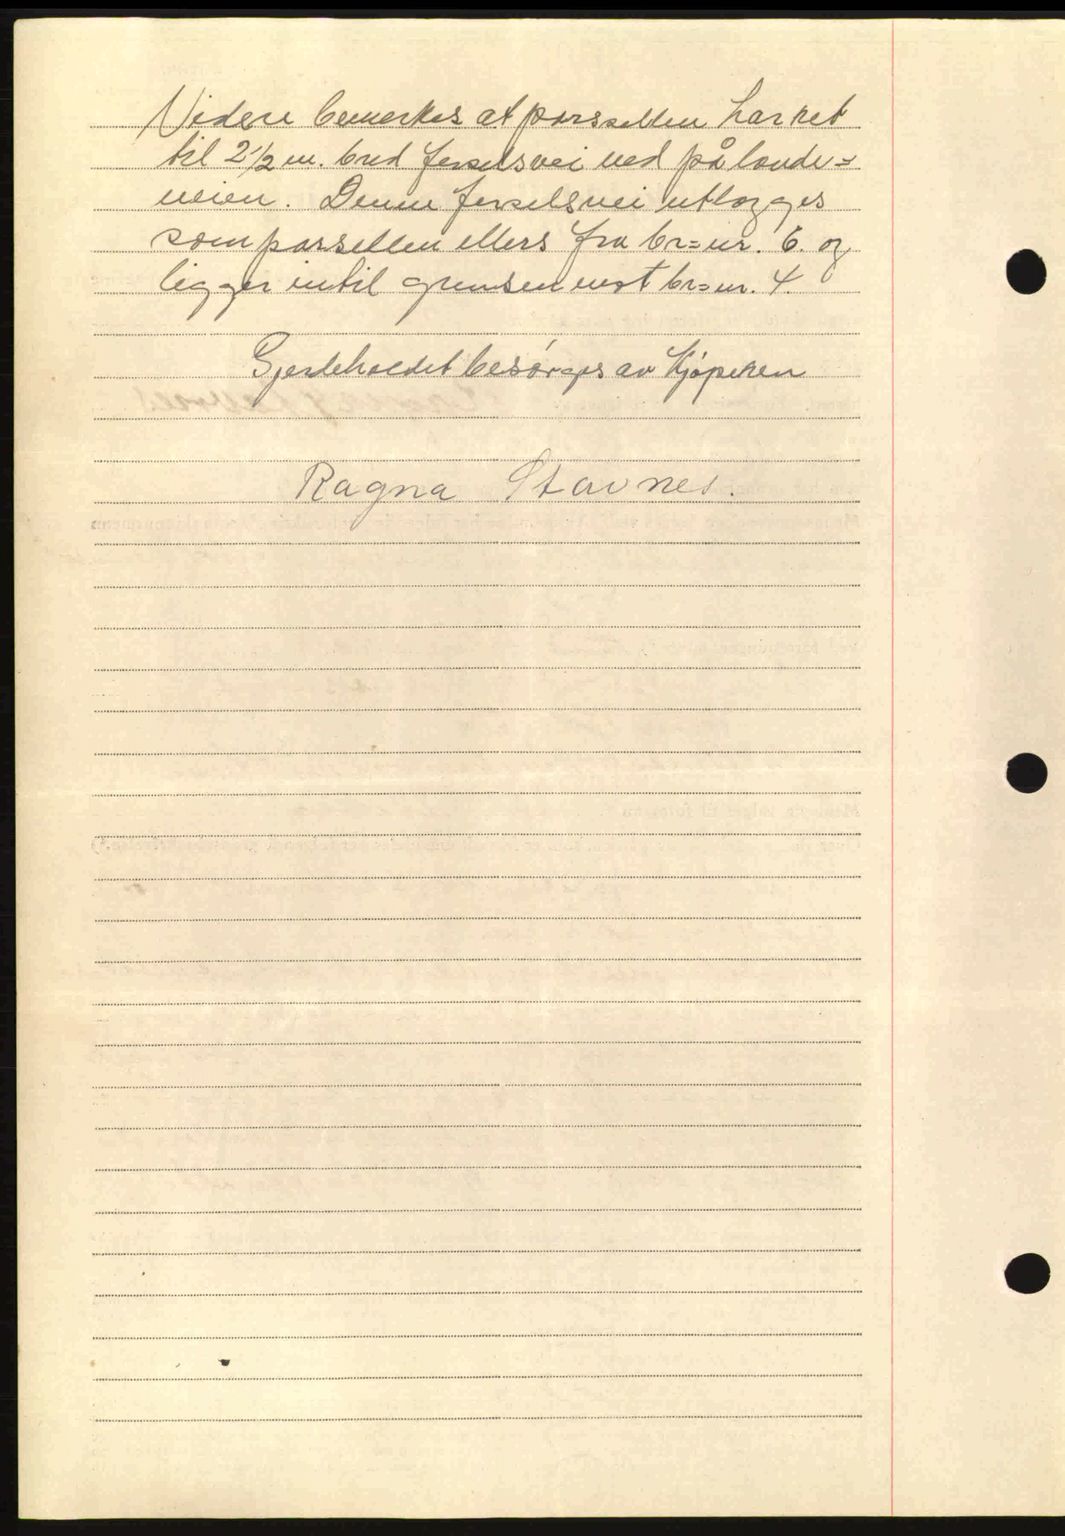 Videre bemerkes at parsellen har ret
til 2 1/2 m. bred ferselsvei ned på lande=
veien. Denne ferselsvei utlægges
som parsellen ellers fra br=nr. 6. og
ligger intil grensen mot br=nr. 4.
Gjerdeholdet besørges av Kjøperen
Ragna Stavnes.